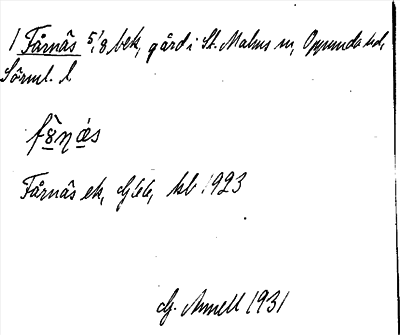 1 Fårnäs 5/8 bek, gård i St. Malms sn, Oppunda hd,
Sörml. l
Fårnäs ek, Gbl, kb 1923
G. Annell 1931